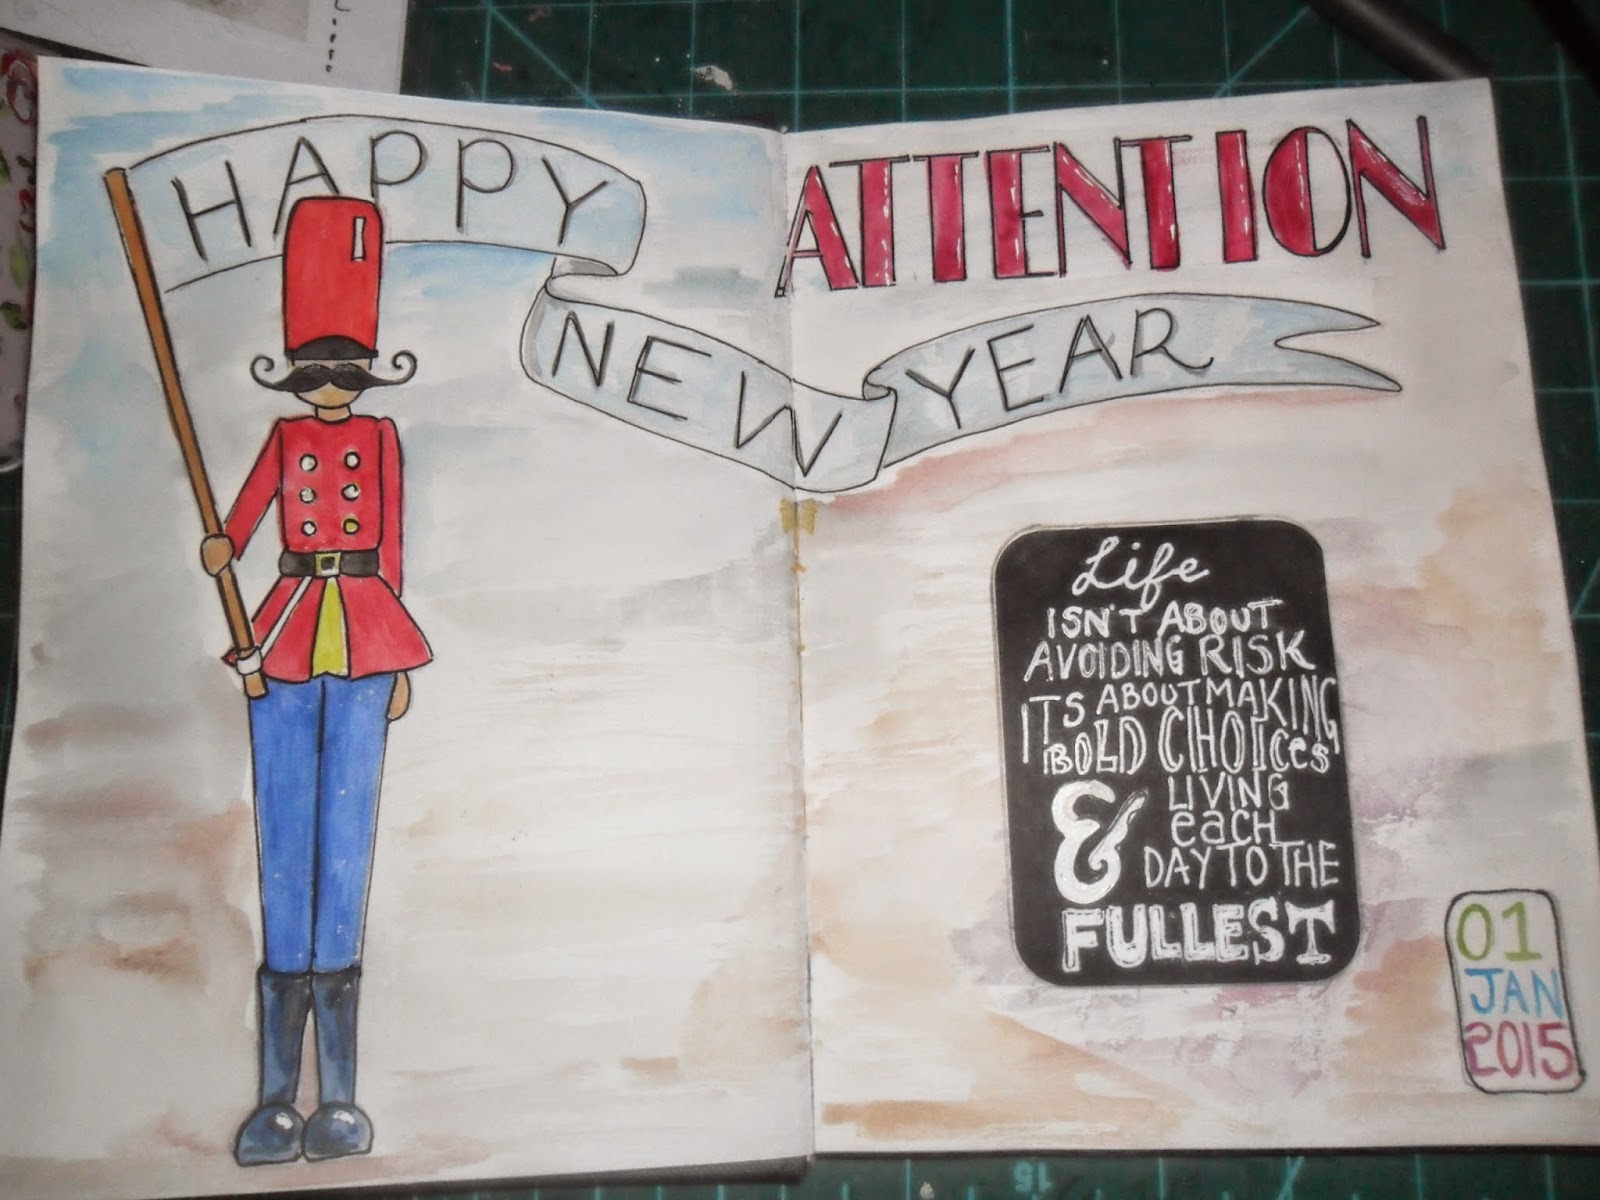 HAPPY
NEW YEAR
ATTENTION
Life
ISN'T ABOUT
AVOIDING RISK
ITS ABOUT MAKING
BOLD CHOICes
& LIVING
eaCH
DAY TO THE
FULLEST
01
JAN
2015
15